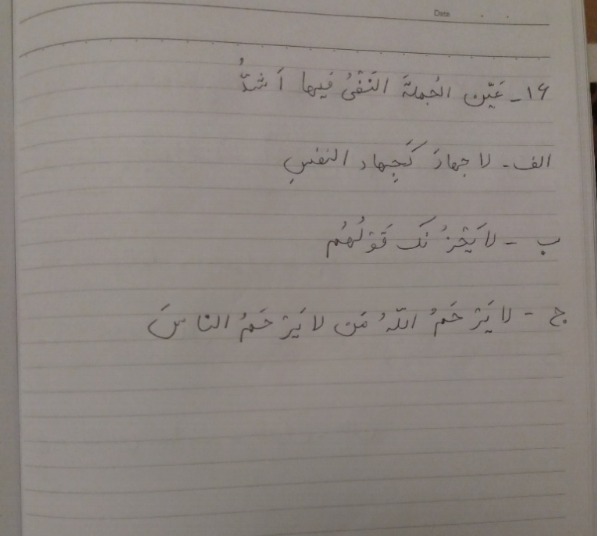 Date
۱۶- عَیّن الجُملةَ النَفْیُ فیها اَشدُّ
الف- لا جهادَ کَجِهاد النفسِ
ب - لا یَحْزُنکَ قَوْلُهُم
ج - لا یَرْحَمُ اللّهُ مَن لا یَرْحَمُ الناسَ